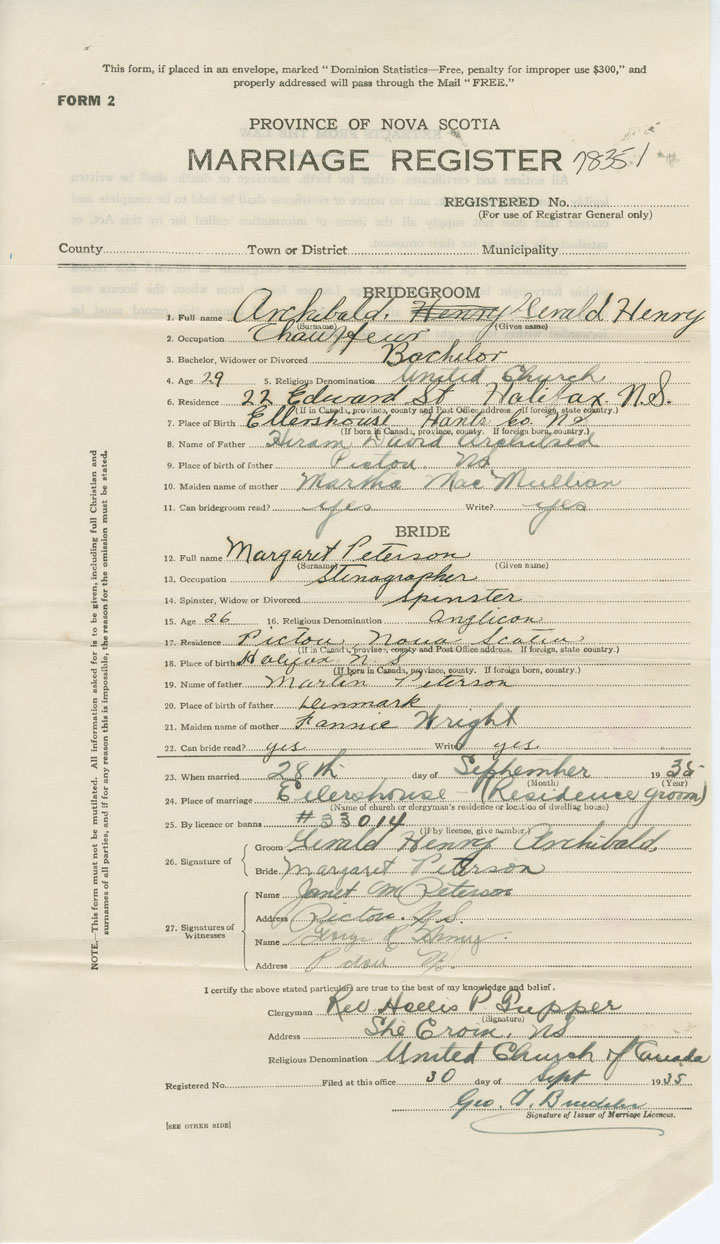 This form, if placed in an envelope, marked “ Dominion Statistics—Free, penalty for improper use $300,” and
properly addressed will pass through the Mail “ FREE.”
FORM 2
PROVINCE OF NOVA SCOTIA
MARRIAGE REGISTER 7835.1
REGISTERED No.
(For use of Registrar General only)
County Town or District Municipality
BRIDEGROOM
1. Full name Archibald, Henry Gerald Henry
(Surname) (Given name)
2. Occupation Chauffeur
3. Bachelor, Widower or Divorced Bachelor
4. Age 29 5. Religious Denomination United Church
6. Residence 22 Edward St Halifax N.S.
(If in Canada, province, county and Post Office address. If foreign, state country.)
7. Place of Birth Ellershouse Hants Co. N.S
(If born in Canada, province, county. If foreign born, country.)
8. Name of Father Hiram David Archibald
9. Place of birth of father Pictou. NS
10. Maiden name of mother Martha MacMullian
11. Can bridegroom read? yes Write? yes
BRIDE
12. Full name Margaret Peterson
(Surname) (Given name)
13. Occupation Stenographer
14. Spinster, Widow or Divorced spinster
15. Age 26 16. Religious Denomination Anglican
17. Residence Pictou Nova Scotia
(If in Canada, province, county and Post Office address. If foreign, state country.)
18. Place of birth Halifax N.S
(If born in Canada, province, county. If foreign born, country.)
19. Name of father Martin Peterson
20. Place of birth of father Denmark
21. Maiden name of mother Fannie Wright
22. Can bride read? yes Write yes
23. When married 28th day of September 1935
(Month) (Year)
24. Place of marriage Ellershouse – (Residence groom)
(Name of church or clergyman's residence or location of dwelling house)
25. By licence or banns #33014
(If by licence, give number.)
26. Signature of
Groom Gerald Henry Archibald
Bride Margaret Peterson
27. Signatures of Witnesses
Name Janet M Peterson
Address Pictou. N.S.
Name George R
Address
I certify the above stated particulars are true to the best of my knowledge and belief.
Clergyman Rev Hollis P
(Signature)
Address NS
Religious Denomination United Church of Canada
Registered No. Filed at this office 30 day of Sept 1935
Geo.
Signature of Issuer of Marriage Licences.
[SEE OTHER SIDE]
NOTE.—This form must not be mutilated. All information asked for is to be given, including full Christian and
surnames of all parties, and if for any reason this is impossible, the reason for the omission must be stated.